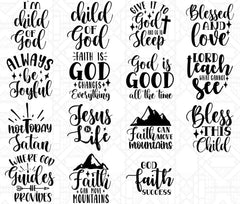 I'M A
child
OF GOD
I'm a
child
OF GOD
GIVE IT TO
GOD
AND GO TO
Sleep
Blessed
AND
Love
ALWAYS
BE
Joyful
FAITH IS:
GOD
CHANGES
Everything
GOD IS
GOOD
all the time
LORD
teach
ME WHAT I
CANNOT SEE
NOT TODAY
Satan
Jesus
IS
Life
Faith
CAN MOVE
MOUNTAINS
Bless
THIS
Child
WHERE GOD
Guides
HE
PROVIDES
Faith
CAN MOVE
MOUNTAINS
GOD
Faith
SUCCESS